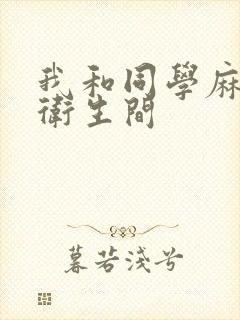 我和同學麻
衛生間
暮若淺兮